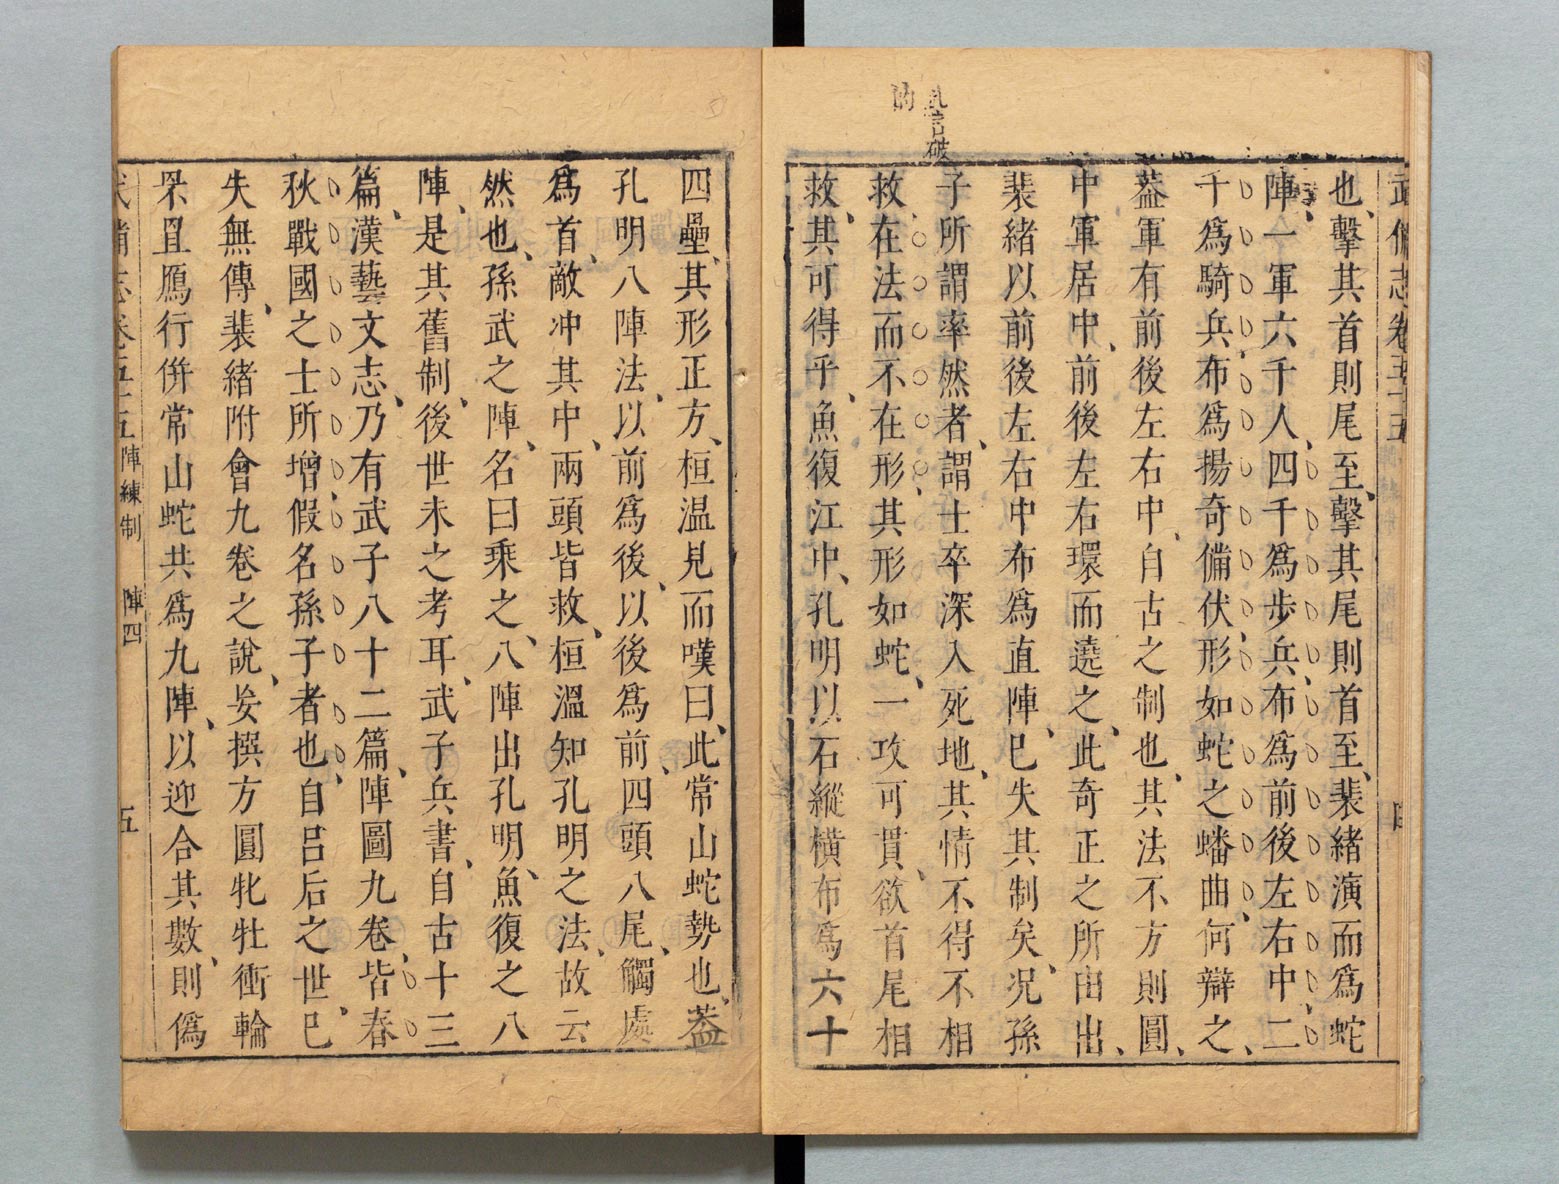 武備志卷五十五
也擊其首則尾至擊其尾則首至裴緒演而爲蛇
陣一軍六千人四千爲步兵布爲前後左右中二
千爲騎兵布爲揚奇備伏形如蛇之蟠曲何辯之
葢軍有前後左右中自古之制也其法不方則圓
中軍居中前後左右環而遶之此奇正之所由出
裴緒以前後左右中布爲直陣已失其制矣况孫
子所謂率然者謂士卒深入死地其情不得不相
救在法而不在形其形如蛇一攻可貫欲首尾相
救其可得乎魚復江中孔明以石縱橫布爲六十
四壘其形正方桓温見而嘆曰此常山蛇勢也葢
孔明八陣法以前爲後以後爲前四頭八尾觸處
爲首敵冲其中兩頭皆救桓溫知孔明之法故云
然也孫武之陣名曰乘之八陣出孔明魚復之八
陣是其舊制後世未之考耳武子兵書自古十三
篇漢藝文志乃有武子八十二篇陣圖九卷皆春
秋戰國之士所增假名孫子者也自呂后之世已
失無傳裴緒附會九卷之說妄撰方圓牝牡衝輪
罘罝鴈行併常山蛇共爲九陣以迎合其數則僞
武備志卷五十五 陣練制 陣四 五